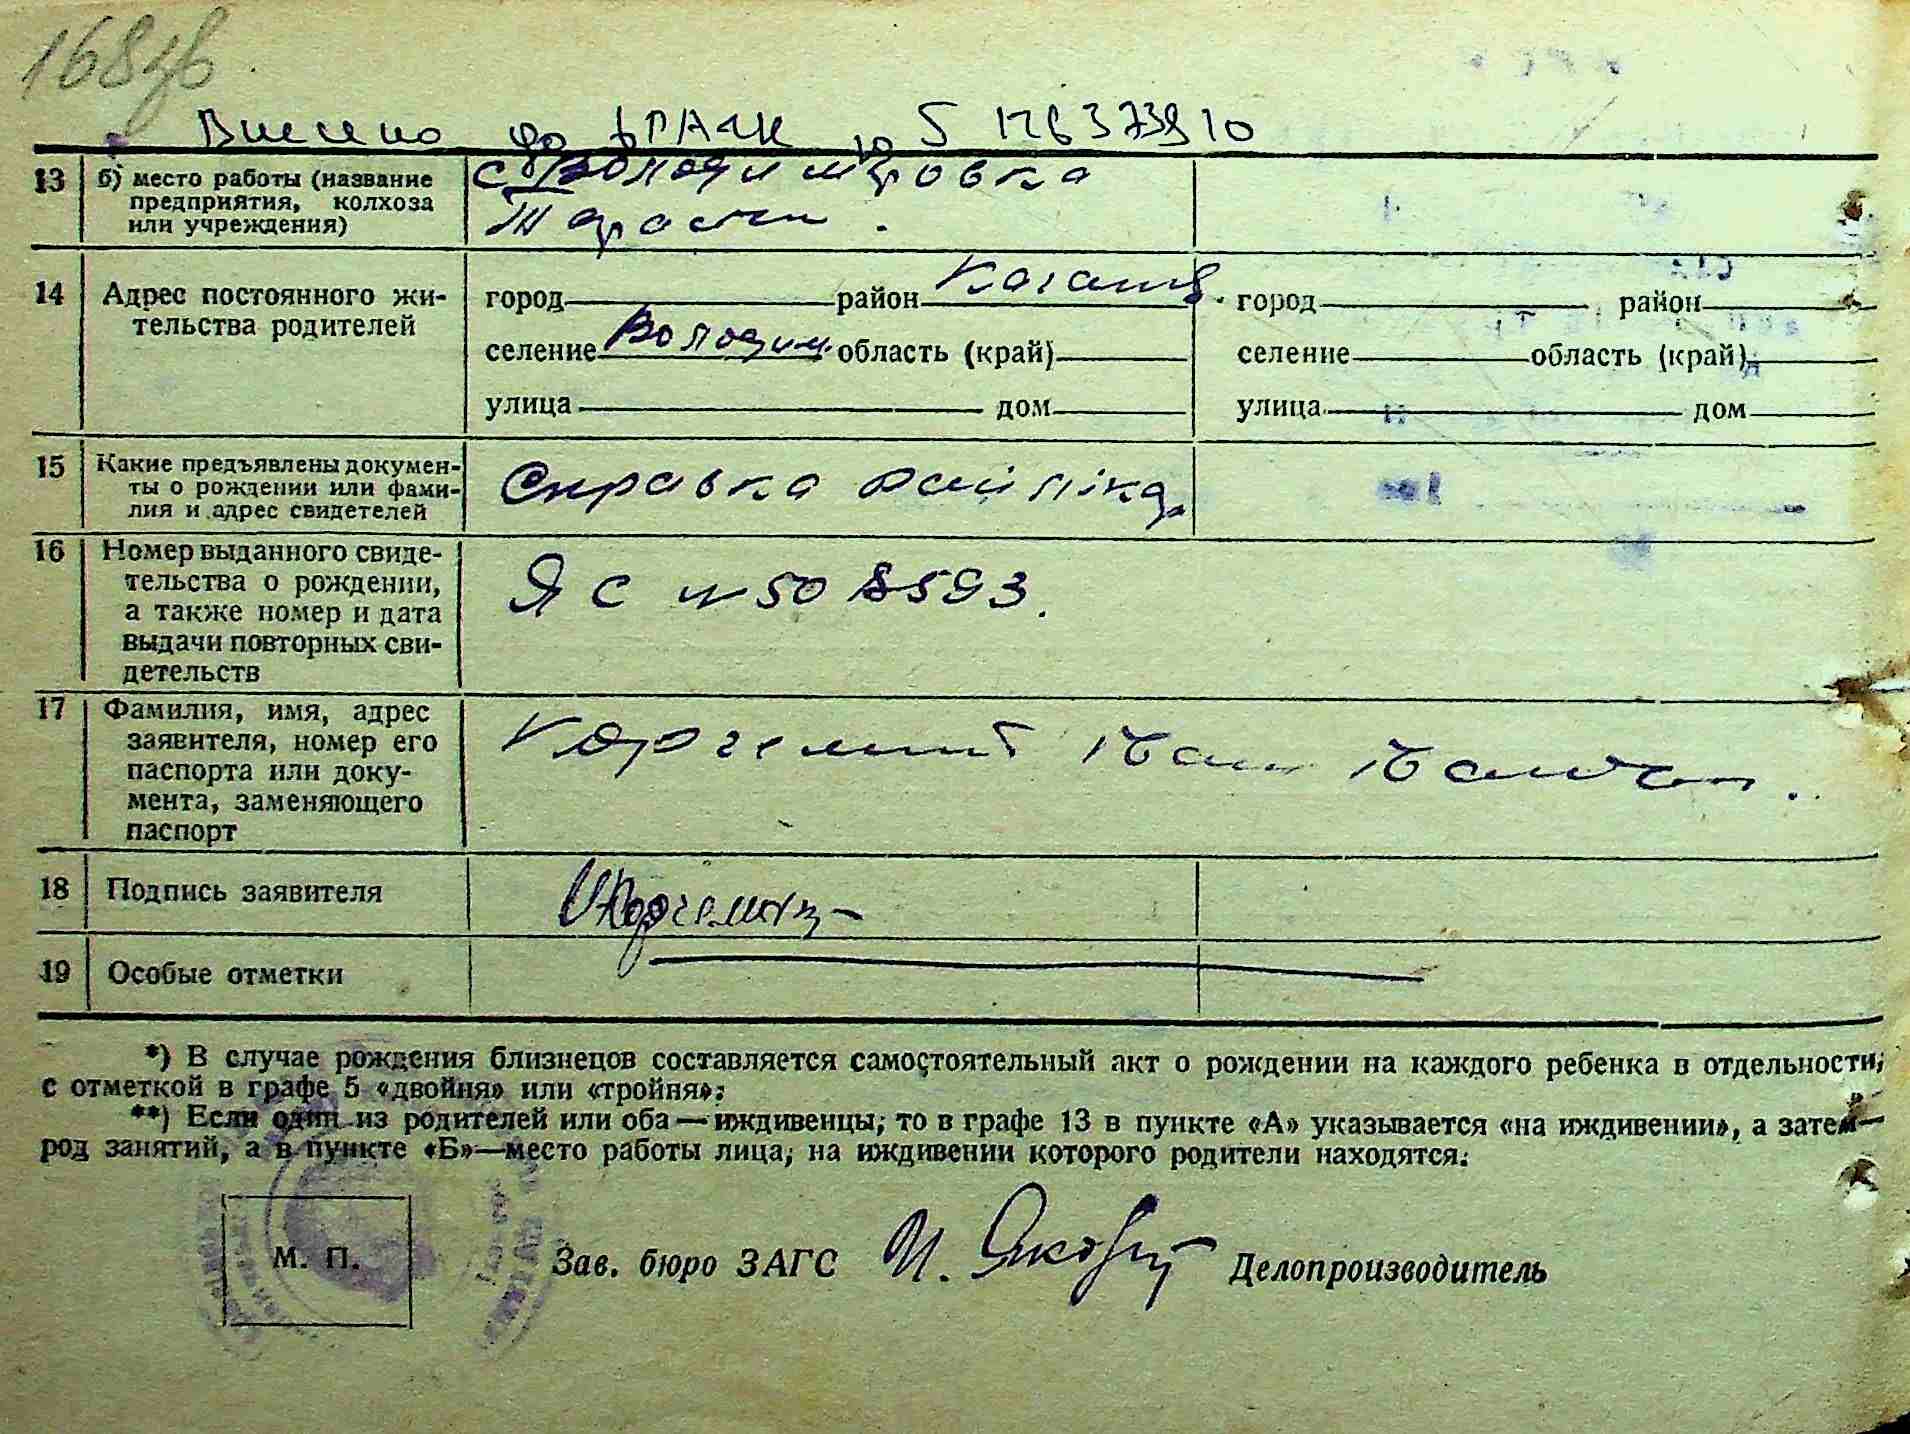 168зв
Внесено до ДРАЦС
13 б) место работы (название предприятия, колхоза или учреждения)
с Володимировка
14 Адрес постоянного жительства родителей
город район город район
селение Володим. область (край) селение область (край)
улица дом улица дом
15 Какие предъявлены документы о рождении или фамилия и адрес свидетелей
Справка
16 Номер выданного свидетельства о рождении, а также номер и дата выдачи повторных свидетельств
ЯС № 508593.
17 Фамилия, имя, адрес заявителя, номер его паспорта или документа, заменяющего паспорт
Иван Иванович.
18 Подпись заявителя
19 Особые отметки
*) В случае рождения близнецов составляется самостоятельный акт о рождении на каждого ребенка в отдельности,
с отметкой в графе 5 «двойня» или «тройня»:
**) Если один из родителей или оба — иждивенцы, то в графе 13 в пункте «А» указывается «на иждивении», а затем—
род занятий, а в пункте «Б»—место работы лица, на иждивении которого родители находятся.
М. П. Зав. бюро ЗАГС Делопроизводитель